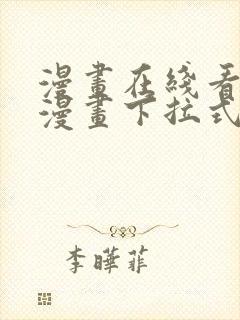 漫畫在綫看
漫畫下拉式
李曄菲